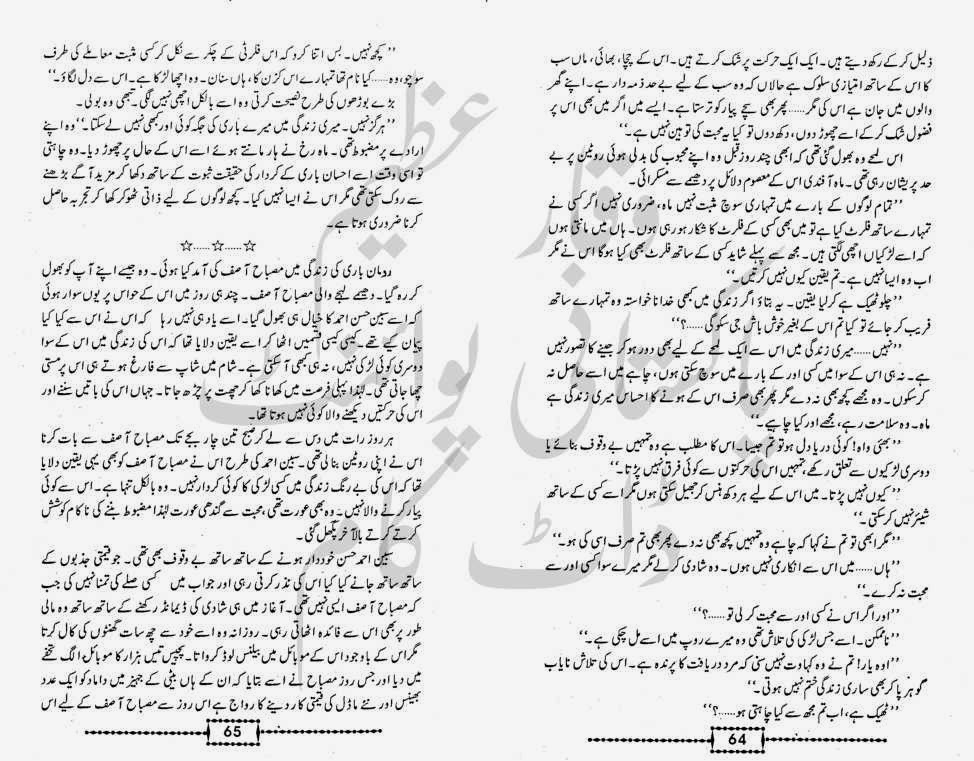 ذلیل کر کے رکھ دیتے ہیں۔ ایک ایک حرکت پر شک کرتے ہیں۔ اس کے چچا، بھائی، ماں سب
کا اس کے ساتھ امتیازی سلوک ہے حالاں کہ وہ سب کے لیے بے حد ذمہ دار ہے۔ اپنے گھر
والوں میں جان ہے اس کی مگر...... پھر بھی سچے پیار کو ترستا ہے۔ ایسے میں اگر میں بھی اس پر
فضول شک کر کے اسے چھوڑ دوں، دکھ دوں تو کیا یہ محبت کی توہین نہیں ہے۔‘‘
اس لمحے وہ بھول گئی تھی کہ ابھی چند روز قبل وہ اپنے محبوب کی بدلی ہوئی روٹین پر بے
حد پریشان رہی تھی۔ ماہ آفندی اس کے معصوم دلائل پر دھیمے سے مسکرائی۔
’’تمام لوگوں کے بارے میں تمہاری سوچ مثبت نہیں ماہ، ضروری نہیں اگر کسی نے
تمہارے ساتھ فلرٹ کیا ہے تو میں بھی کسی کے فلرٹ کا شکار ہو رہی ہوں۔ ہاں میں مانتی ہوں
کہ اسے لڑکیاں اچھی لگتی ہیں۔ مجھ سے پہلے شاید کسی کے ساتھ فلرٹ بھی کیا ہو گا اس نے مگر
اب وہ ایسا نہیں ہے۔ تم یقین کیوں نہیں کرتیں۔‘‘
’’چلو ٹھیک ہے کر لیا یقین۔ یہ بتاؤ اگر زندگی میں کبھی خدانخواستہ وہ تمہارے ساتھ
فریب کر جائے تو کیا تم اس کے بغیر خوش باش جی سکو گی......؟‘‘
’’نہیں...... میری زندگی میں اس سے ایک لمحے کے لیے بھی دور ہو کر جینے کا تصور نہیں
ہے۔ نہ ہی اس کے سوا میں کسی اور کے بارے میں سوچ سکتی ہوں، چاہے میں اسے حاصل نہ
کر سکوں۔ وہ مجھے کچھ بھی نہ دے مگر پھر بھی صرف اس کے ہونے کا احساس میری زندگی ہے
ماہ۔ وہ سلامت رہے، مجھے اور کیا چاہیے۔‘‘
’’بھئی واہ! کوئی دریا دل ہو تو تم جیسا۔ اس کا مطلب ہے وہ تمہیں بے وقوف بنائے یا
دوسری لڑکیوں سے تعلق رکھے، تمہیں اس کی حرکتوں سے کوئی فرق نہیں پڑتا۔‘‘
’’کیوں نہیں پڑتا۔ میں اس کے لیے ہر دکھ ہنس کر جھیل سکتی ہوں مگر اسے کسی کے ساتھ
شیئر نہیں کر سکتی۔‘‘
’’مگر ابھی تو تم نے کہا کہ چاہے وہ تمہیں کچھ بھی نہ دے پھر بھی تم صرف اسی کی ہو۔‘‘
’’ہاں...... میں اس سے انکاری نہیں ہوں۔ وہ شادی کر لے مگر میرے سوا کسی اور سے
محبت نہ کرے۔‘‘
’’اور اگر اس نے کسی اور سے محبت کر لی تو......؟‘‘
’’ناممکن۔ اسے جس لڑکی کی تلاش تھی وہ میرے روپ میں اسے مل چکی ہے۔‘‘
’’اوہ یار! تم نے وہ کہاوت نہیں سنی کہ مرد دریافت کا پرندہ ہے۔ اس کی تلاش نایاب
گوہر پا کر بھی ساری زندگی ختم نہیں ہوتی۔‘‘
’’ٹھیک ہے، اب تم مجھ سے کیا چاہتی ہو......؟‘‘
64
’’کچھ نہیں۔ بس اتنا کرو کہ اس فلرٹی کے چکر سے نکل کر کسی مثبت معاملے کی طرف
سوچو، وہ...... کیا نام تھا تمہارے اس کزن کا، ہاں سنان۔ وہ اچھا لڑکا ہے۔ اس سے دل لگاؤ۔‘‘
بڑے بوڑھوں کی طرح نصیحت کرتی وہ اسے بالکل اچھی نہیں لگی۔ تبھی وہ بولی۔
’’ہرگز نہیں۔ میری زندگی میں میرے باری کی جگہ کوئی اور کبھی نہیں لے سکتا۔‘‘ وہ اپنے
ارادے پر مضبوط تھی۔ ماہ رخ نے ہار مانتے ہوئے اسے اس کے حال پر چھوڑ دیا۔ وہ چاہتی
تو اسی وقت اسے احسان باری کے کردار کی حقیقت ثبوت کے ساتھ دکھا کر مزید آگے بڑھنے
سے روک سکتی تھی مگر اس نے ایسا نہیں کیا۔ کچھ لوگوں کے لیے ذاتی ٹھوکر کھا کر تجربہ حاصل
کرنا ضروری ہوتا ہے۔
☆......☆......☆
رومان باری کی زندگی میں مصباح آصف کی آمد کیا ہوئی۔ وہ جیسے اپنے آپ کو بھول
کر رہ گیا۔ دھیمے لہجے والی مصباح آصف۔ چند ہی روز میں اس کے حواس پر یوں سوار ہوئی
کہ اسے سبین حسن احمد کا خیال ہی بھول گیا۔ اسے یاد ہی نہیں رہا کہ اس نے اس سے کیا کیا
پیمان کیے تھے۔ کیسی کیسی قسمیں اٹھا کر اسے یقین دلایا تھا کہ اس کی زندگی میں اس کے سوا
دوسری کوئی لڑکی نہیں، نہ ہی کبھی آ سکتی ہے۔ شام میں شاپ سے فارغ ہوتے ہی اس پر مستی
چھا جاتی تھی۔ لہٰذا پہلی فرصت میں کھانا کھا کر چھت پر چڑھ جاتا۔ جہاں اس کی باتیں سننے اور
اس کی حرکتیں دیکھنے والا کوئی نہیں ہوتا تھا۔
ہر روز رات میں دس سے لے کر صبح تین چار بجے تک مصباح آصف سے بات کرنا
اس نے اپنی روٹین بنا لی تھی۔ سبین احمد کی طرح اس نے مصباح آصف کو بھی یہی یقین دلایا
تھا کہ اس کی بے رنگ زندگی میں کسی لڑکی کا کوئی کردار نہیں۔ وہ بالکل تنہا ہے۔ اس سے کوئی
پیار کرنے والا نہیں۔ وہ بھی عورت تھی، محبت سے گندھی عورت لہٰذا مضبوط بننے کی ناکام کوشش
کرتے کرتے بالآخر پگھل گئی۔
سبین احمد حسن خوددار ہونے کے ساتھ ساتھ بے وقوف بھی تھی۔ جو قیمتی جذبوں کے
ساتھ ساتھ جانے کیا کیا اس کی نذر کرتی رہی اور جواب میں کسی صلے کی تمنا نہیں کی جب
کہ مصباح آصف ایسی نہیں تھی۔ آغاز میں ہی شادی کی ڈیمانڈ رکھنے کے ساتھ ساتھ وہ مالی
طور پر بھی اس سے فائدہ اٹھاتی رہی۔ روزانہ وہ اسے خود سے چھ سات گھنٹوں کی کال کرتا
مگر اس کے باوجود اس کے موبائل میں بیلنس لوڈ کرواتا۔ پچیس تیس ہزار کا موبائل الگ تحفے
میں دیا اور جس روز مصباح نے اسے بتایا کہ ان کے ہاں بیٹی کے جہیز میں داماد کو ایک عدد
بھینس اور نئے ماڈل کی قیمتی کار دینے کا رواج ہے اس روز سے مصباح آصف کے لیے اس
65
وقار عظیم
پاکستانی پوائنٹ
ڈاٹ کام